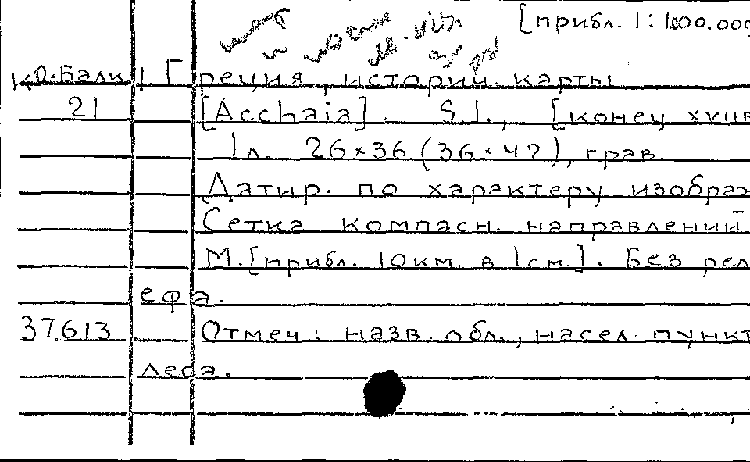 [прибл. 1:1000.000
Ко.Балк Греция, историч. карты
21 [Acchaia]. S.l., [конец XVII в
1л. 26×36 (36×47), грав.
Датир. по характеру изображ
Сетка компасн. направлений
М.[прибл. 10км в 1см.]. Без рел
ефа.
37613 Отмеч.: назв. обл., насел. пункт
леса.